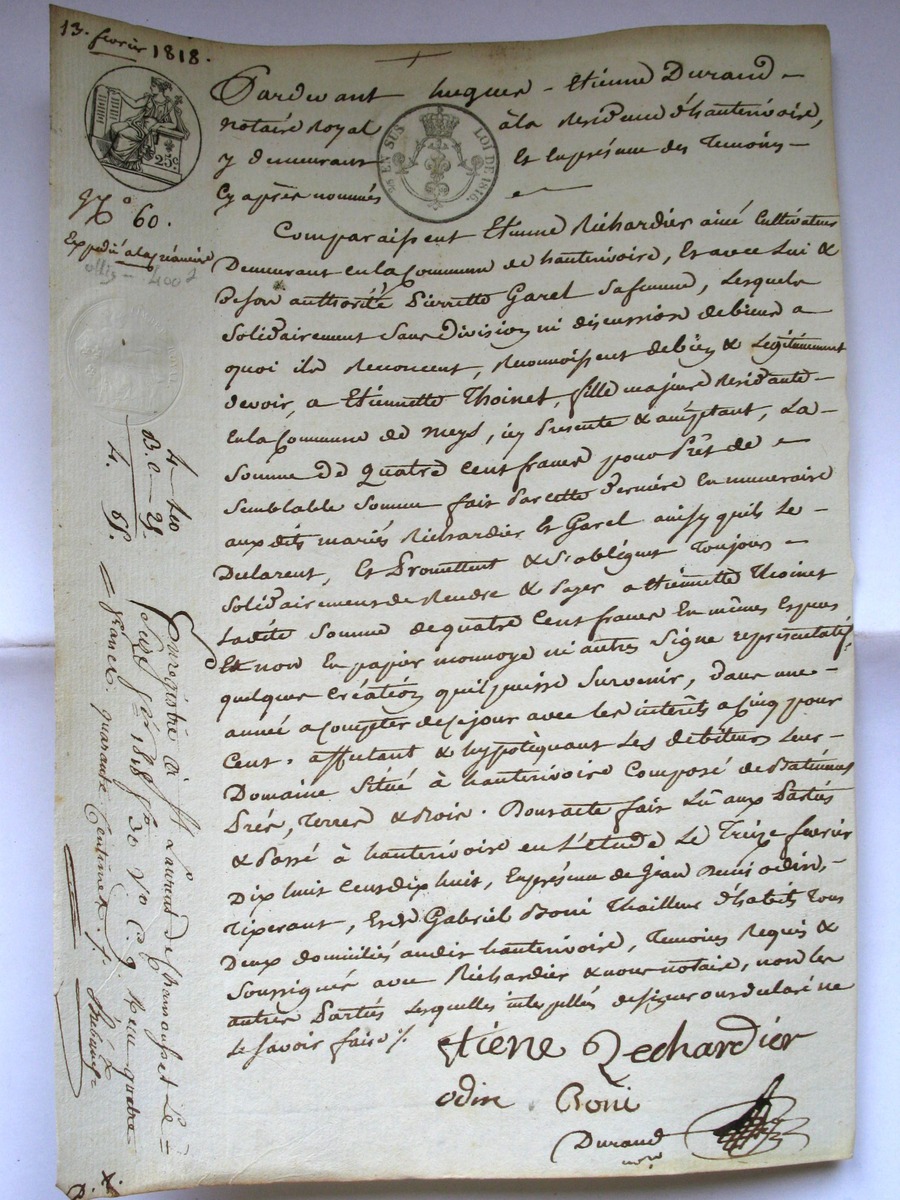 13. fevrier 1818.
25c
EN SUS LOI DE 1816.
N° 60.
Expedié a la créancière
400
Pardevant hugues - Etienne Durand -
notaire Royal à la Residence d'hauterivoire,
y demeurant Et En présence des Temoins -
Cy après nommés
Comparaissent Etienne Richardier ainé Cultivateur
Demeurant en la Commune de hauterivoire, Et avec Lui &
De son authorité Pierrette Garel sa femme, Lesquels
Solidairement Sans Division ni discussion de biens a
quoi ils Renoncent, Reconnoissent debien & Légitimement
devoir, a Etiennette Thoinet, fille majeure Residante -
En la Commune de Meys, icy Presente & acceptant, La -
Somme De Quatre Cent francs pour Prêt de
Semblable Somme fait Par cette Derniere En numeraire
aux dits mariés Richardier Et Garel ainsy quils Le -
Declarent, Et Promettent & S'obligent Toujours -
Solidairement de Rendre & Payer a Etiennette Thoinet
Ladite Somme de quatre Cent francs En mêmes Especes
Et non En papier monnoye ni autres Signe representatif
quelque Création quil puisse Survenir, dans une -
année a Compter de Ce jour avec Les interêts a Cinq pour
Cent. affectant & hypotequant Les debiteurs Leur -
Domaine Situé à hauterivoire Composé de Batiments
Prés, Terres & Bois. Dont acte fait Lû aux Parties
& Passé à hauterivoire en L'étude Le Treize fevrier
Dix huit Cent dix huit, En présence de Jean Denis odin,
Tixerant, Et de Gabriel Boni Thailleur d'habits Tous
Deux domiciliés audit hauterivoire, Temoins Requis &
Soussignés avec Richardier & nous notaire, non Les
autres Parties Lesquelles interpellées de signer ont declaré ne
Le Savoir faire /.
Etiene Rechardier
odin Boni
Durand
4 - 40
4. 85.
Enregistré à St Laurent de Chamousset Le =
1818 fo 30 Vo C 9 Reçu quatre
francs quarante Centimes /.